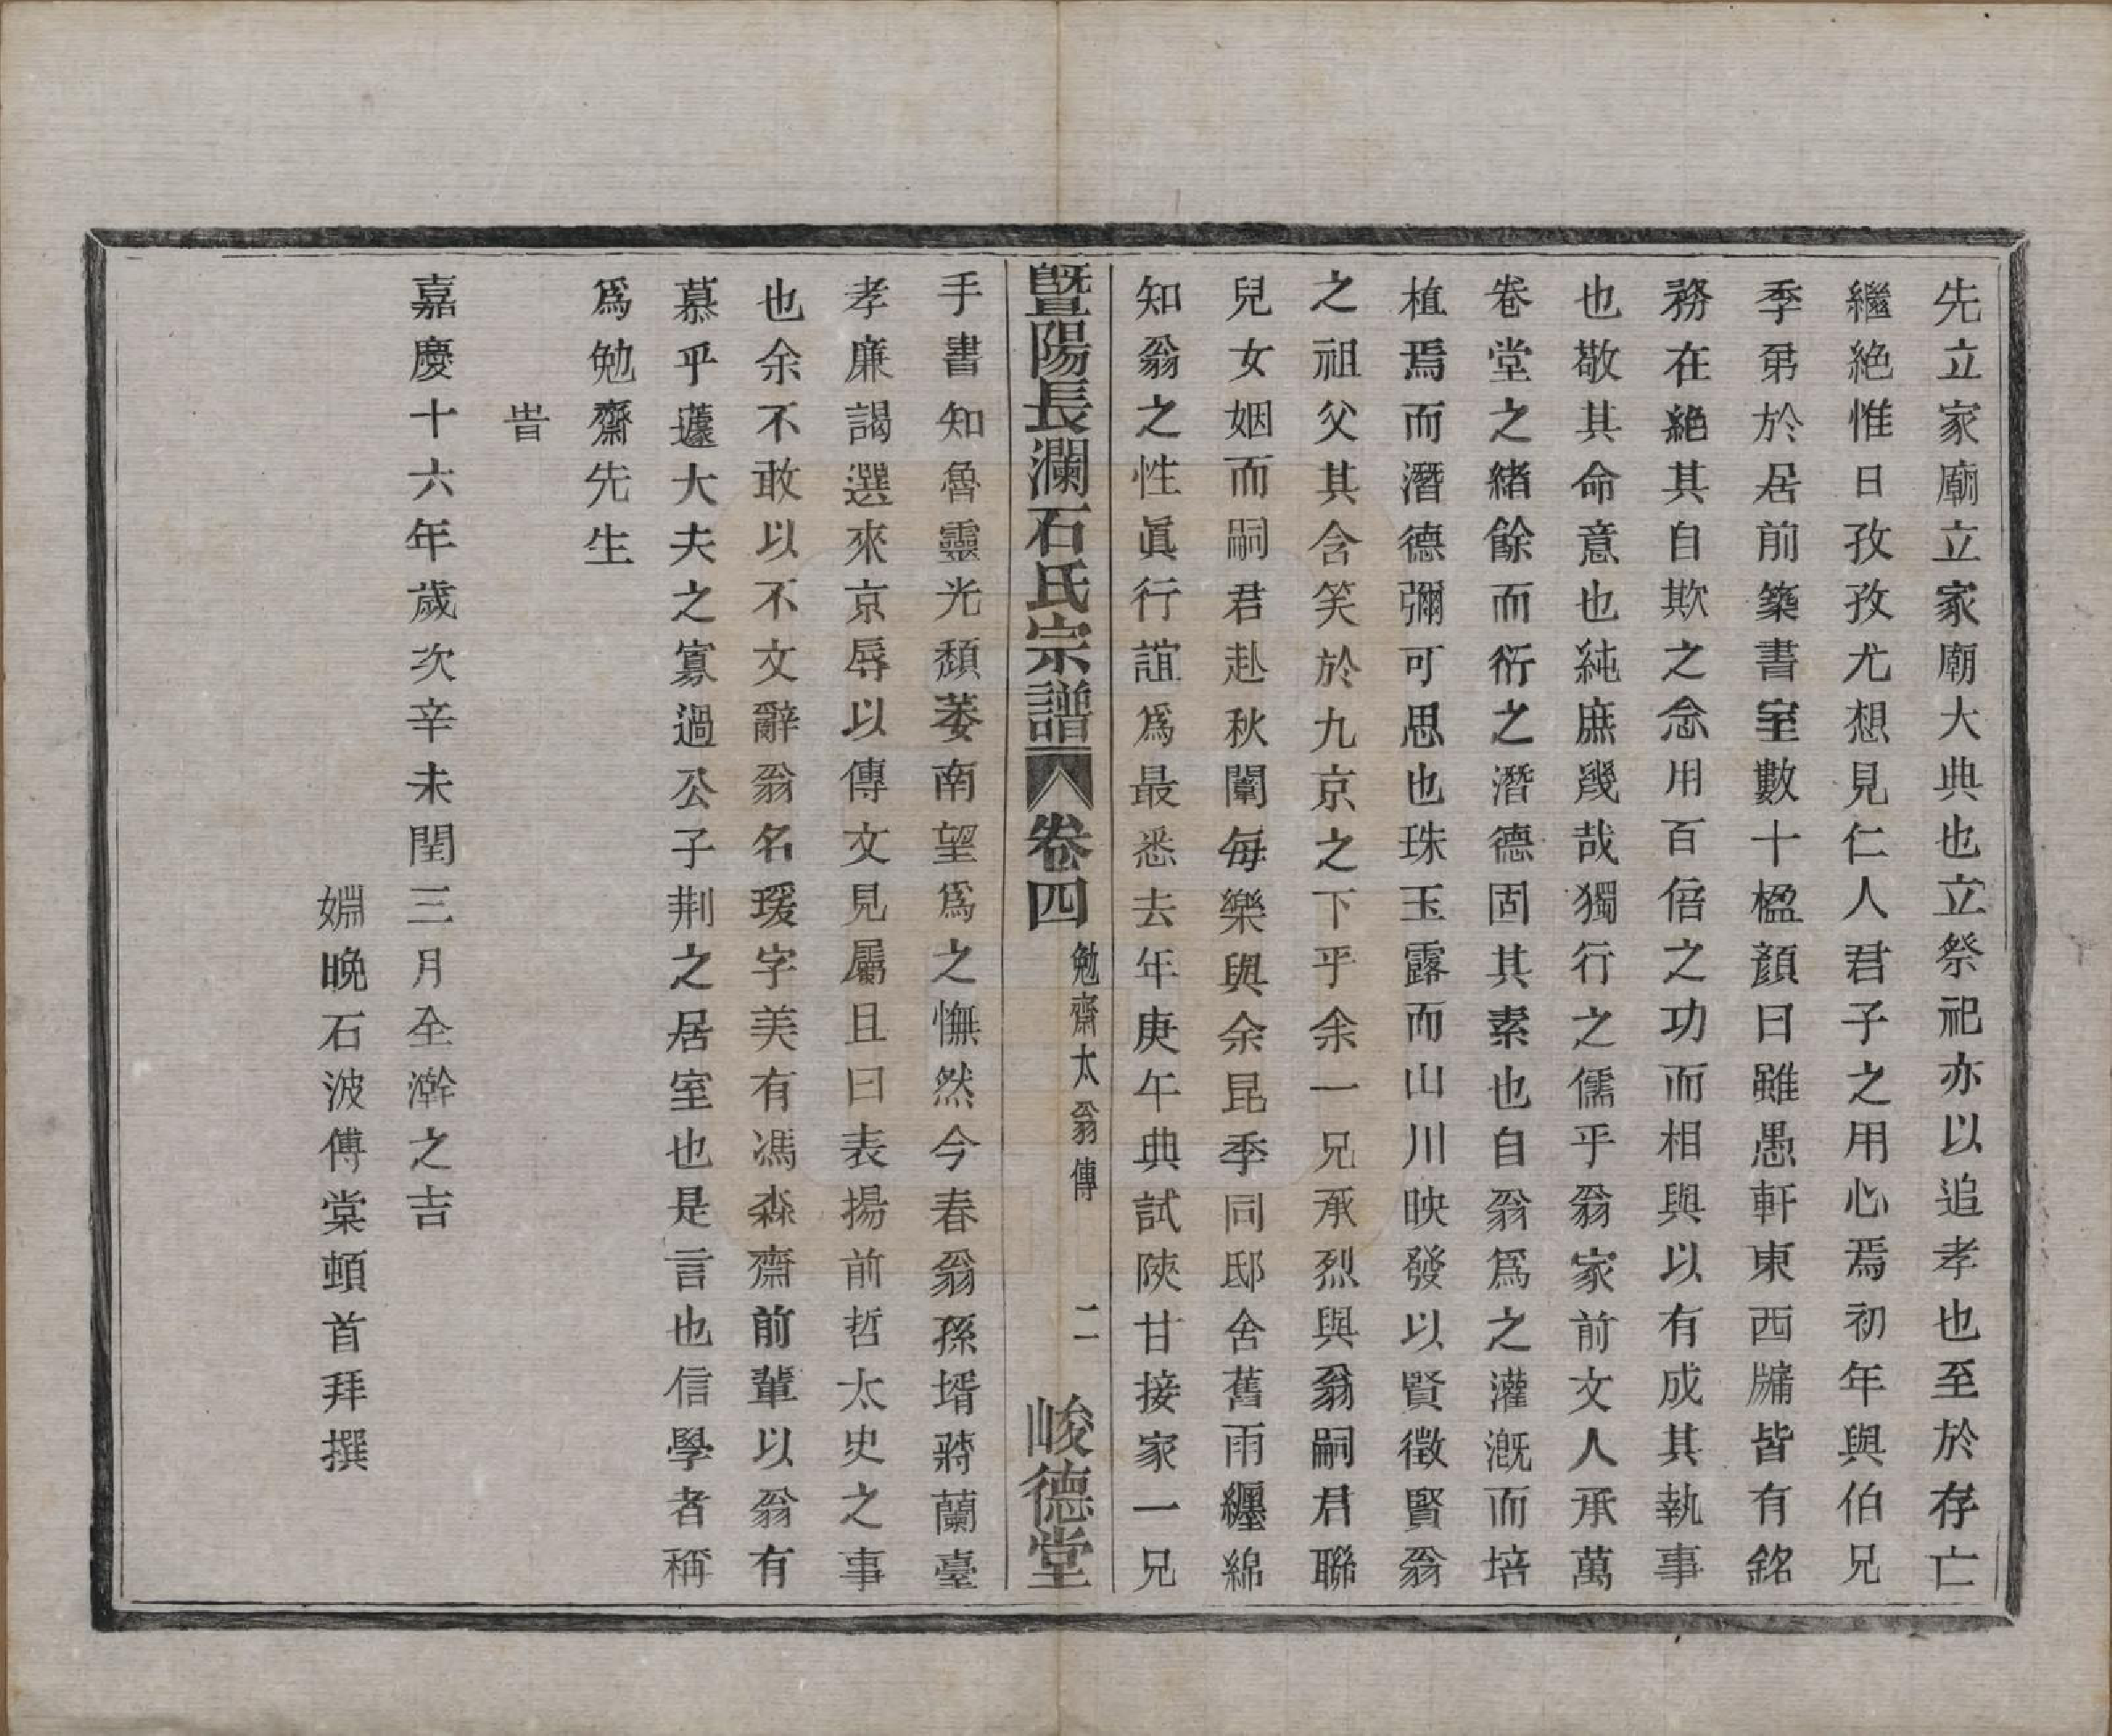 先立家廟立家廟大典也立祭祀亦以追孝也至於存亡
繼絕惟日孜孜尤想見仁人君子之用心焉初年與伯兄
季弟於居前築書室數十楹顏曰雖愚軒東西牖皆有銘
務在絕其自欺之念用百倍之功而相與以有成其執事
也敬其命意也純庶幾哉獨行之儒乎翁家前文人承萬
卷堂之緒餘而衍之潛德固其素也自翁爲之灌漑而培
植焉而潛德彌可思也珠玉露而山川映發以賢徵賢翁
之祖父其含笑於九京之下乎余一兄承烈與翁嗣君聯
兒女姻而嗣君赴秋闈每樂與余昆季同邸舍舊雨纏綿
知翁之性眞行誼爲最悉去年庚午典試陝甘接家一兄
暨陽長瀾石氏宗譜 卷四 勉齋太翁傳 二 峻德堂
手書知魯靈光頽萎南望爲之憮然今春翁孫壻蔣蘭臺
孝廉謁選來京辱以傳文見屬且曰表揚前哲太史之事
也余不敢以不文辭翁名瑗字美有馮淼齋前輩以翁有
慕乎蘧大夫之寡過公子荆之居室也是言也信學者稱
爲勉齋先生
旹
嘉慶十六年歲次辛未閏三月全澣之吉
婣晚石波傅棠頓首拜撰